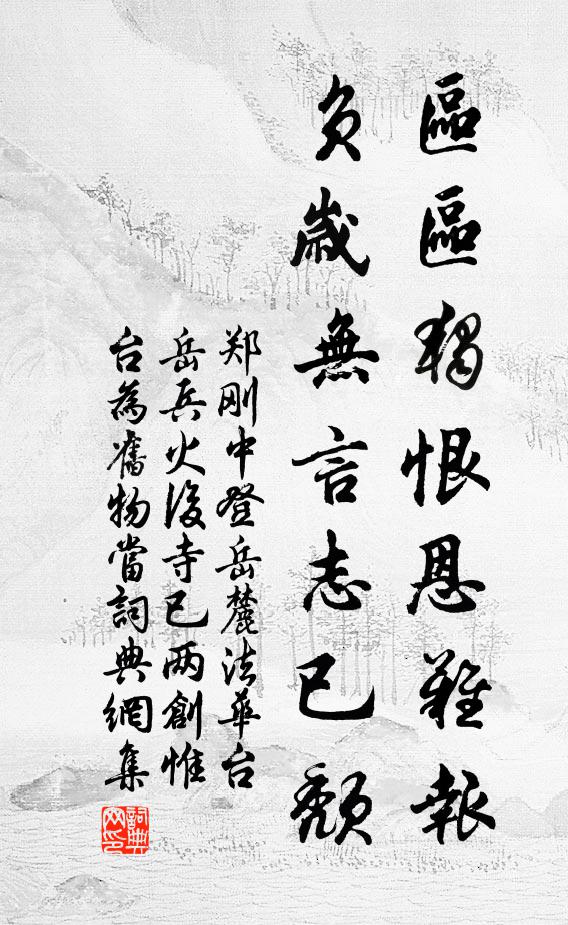 區區獨恨恩難報
負歲無言志已頹
郑刚中登岳麓法華台
岳兵火後寺已两創惟
台為舊物當詞典網集
詞典网印